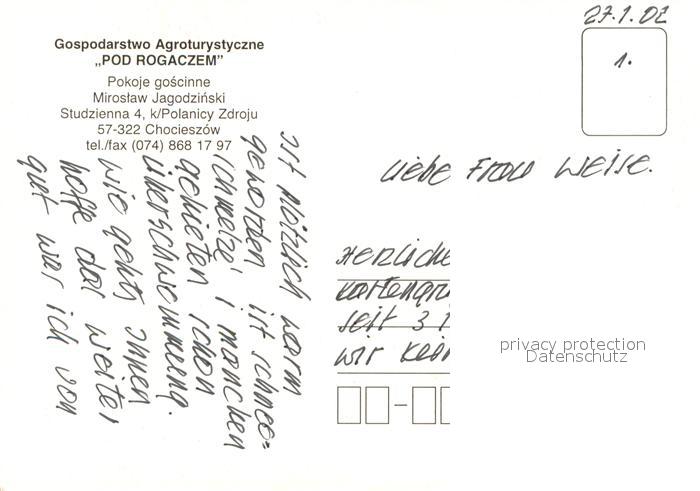 27.1.02
1.
Gospodarstwo Agroturystyczne
„POD ROGACZEM”
Pokoje gościnne
Mirosław Jagodziński
Studzienna 4, k/Polanicy Zdroju
57-322 Chocieszów
tel./fax (074) 868 17 97
Liebe Frau Weise.
Herzliche
Kartengrü
seit 3 T
wir kein
privacy protection
Datenschutz
ist plötzlich warm
geworden ist schnee=
schmelze, i manchen
gebieten schon
überschwemmung.
wie gehts Ihnen
hoffe das weiter
gut war ich von